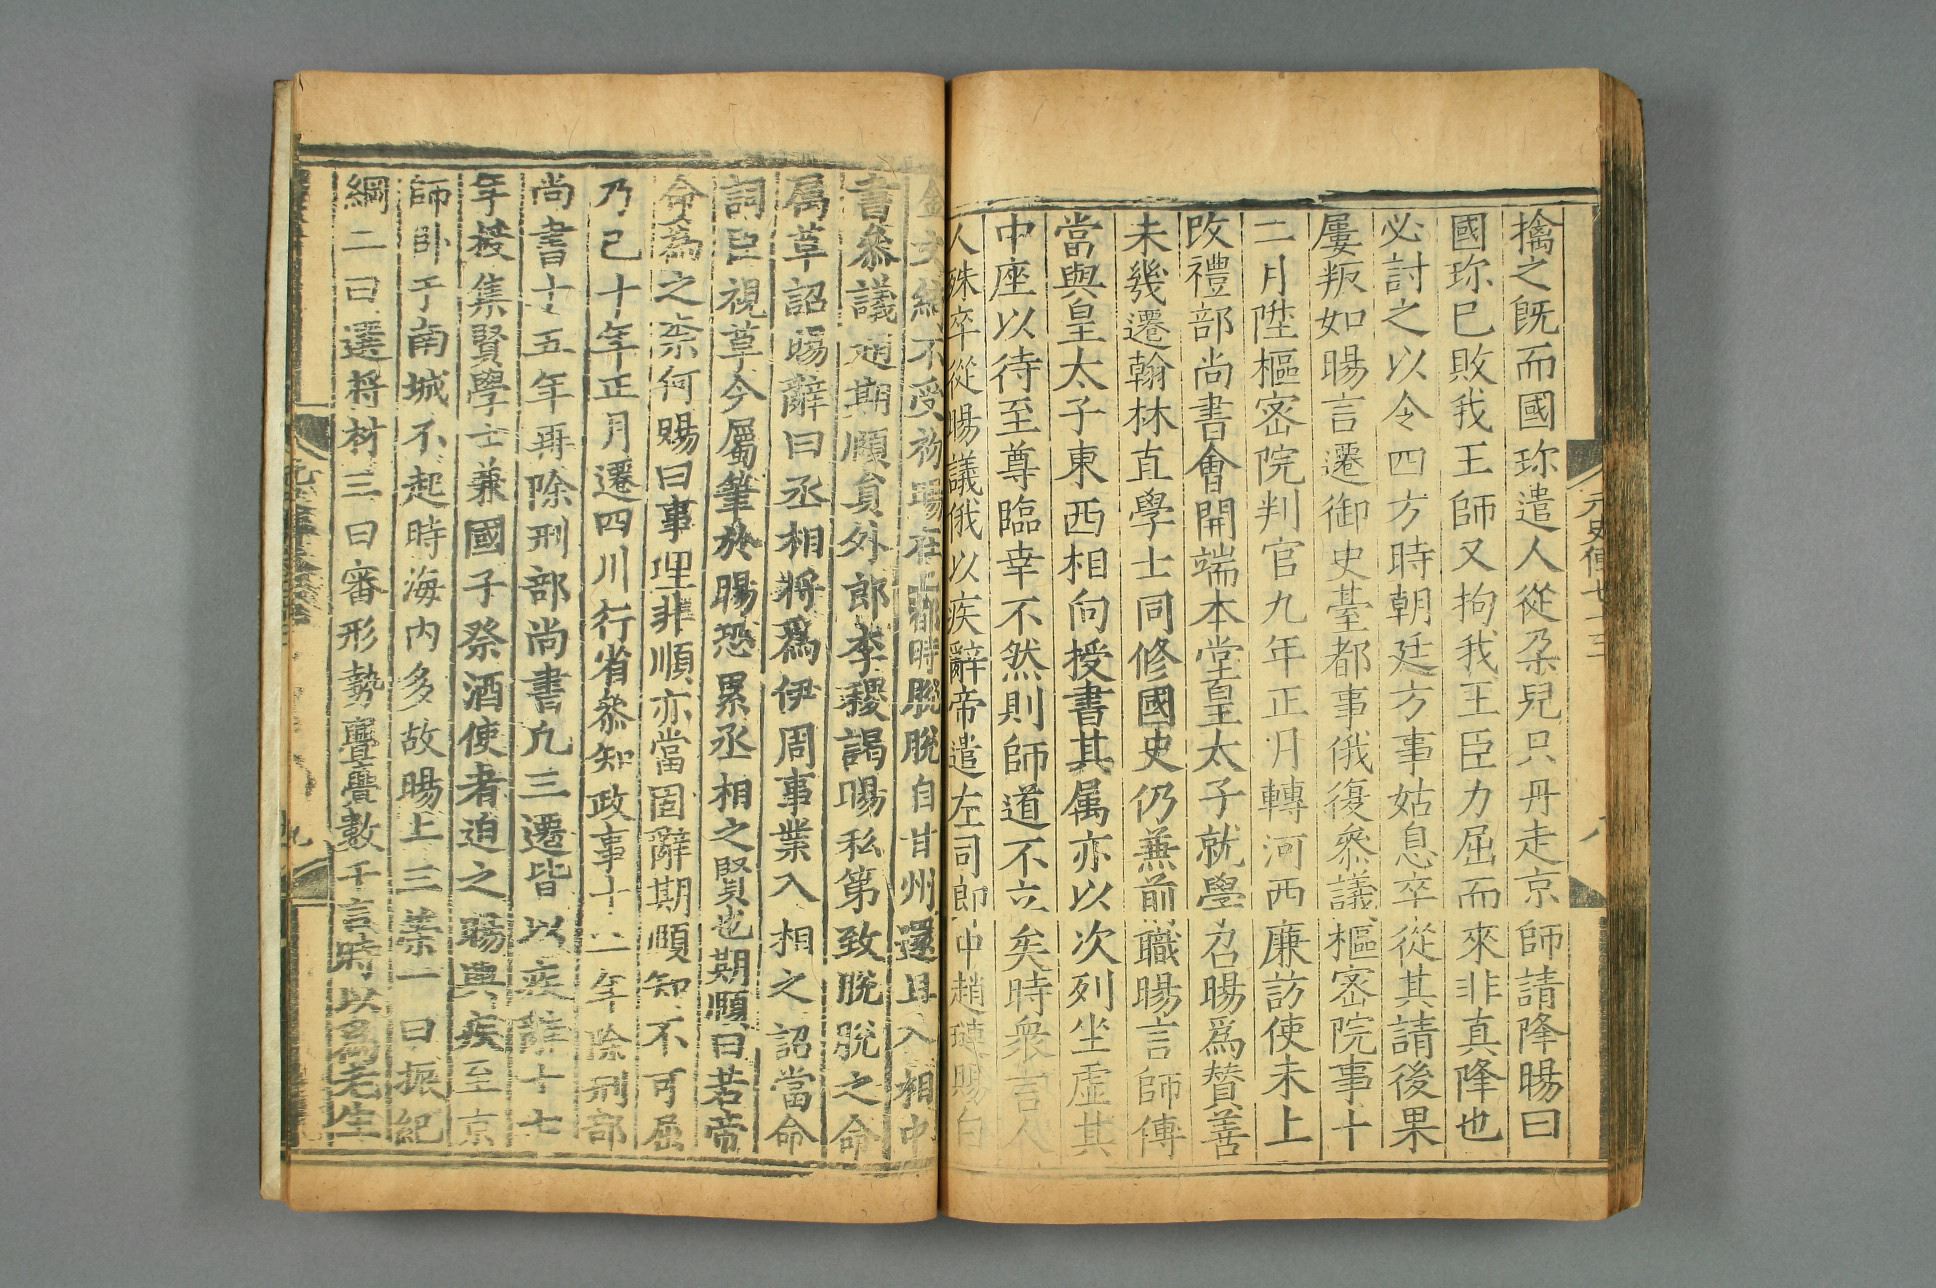 元史傳七十三
八
擒之既而國珎遣人從朶兒只丹走京師請降暘曰
國珎已敗我王師又拘我王臣力屈而來非真降也
必討之以令四方時朝廷方事姑息卒從其請後果
屢叛如暘言遷御史臺都事俄復叅議樞密院事十
二月陞樞密院判官九年正月轉河西廉訪使未上
改禮部尚書會開端本堂皇太子就學召暘爲贊善
未幾遷翰林直學士同修國史仍兼前職暘言師傅
當與皇太子東西相向授書其属亦以次列坐虛其
中座以待至尊臨幸不然則師道不立矣時衆言人
人殊卒從暘議俄以疾辭帝遣左司郎中趙璉賜白
金文綺不受初暘在上都時脫脫自甘州還且入相中
書叅議趙期頤員外郎李稷謁暘私第致脫脫之命
属草詔暘辭曰丞相將爲伊周事業入相之詔當命
詞臣視草今屬筆於暘恐累丞相之賢也期頤曰若帝
命爲之柰何暘曰事理非順亦當固辭期頤知不可屈
乃已十年正月遷四川行省叅知政事十一年除刑部
尚書十五年再除刑部尚書凡三遷皆以疾辭十七
年授集賢學士兼國子祭酒使者迫之暘輿疾至京
師卧于南城不起時海內多故暘上三策一曰振紀
綱二曰選将材三曰審形勢亹亹數千言時以爲老生
九